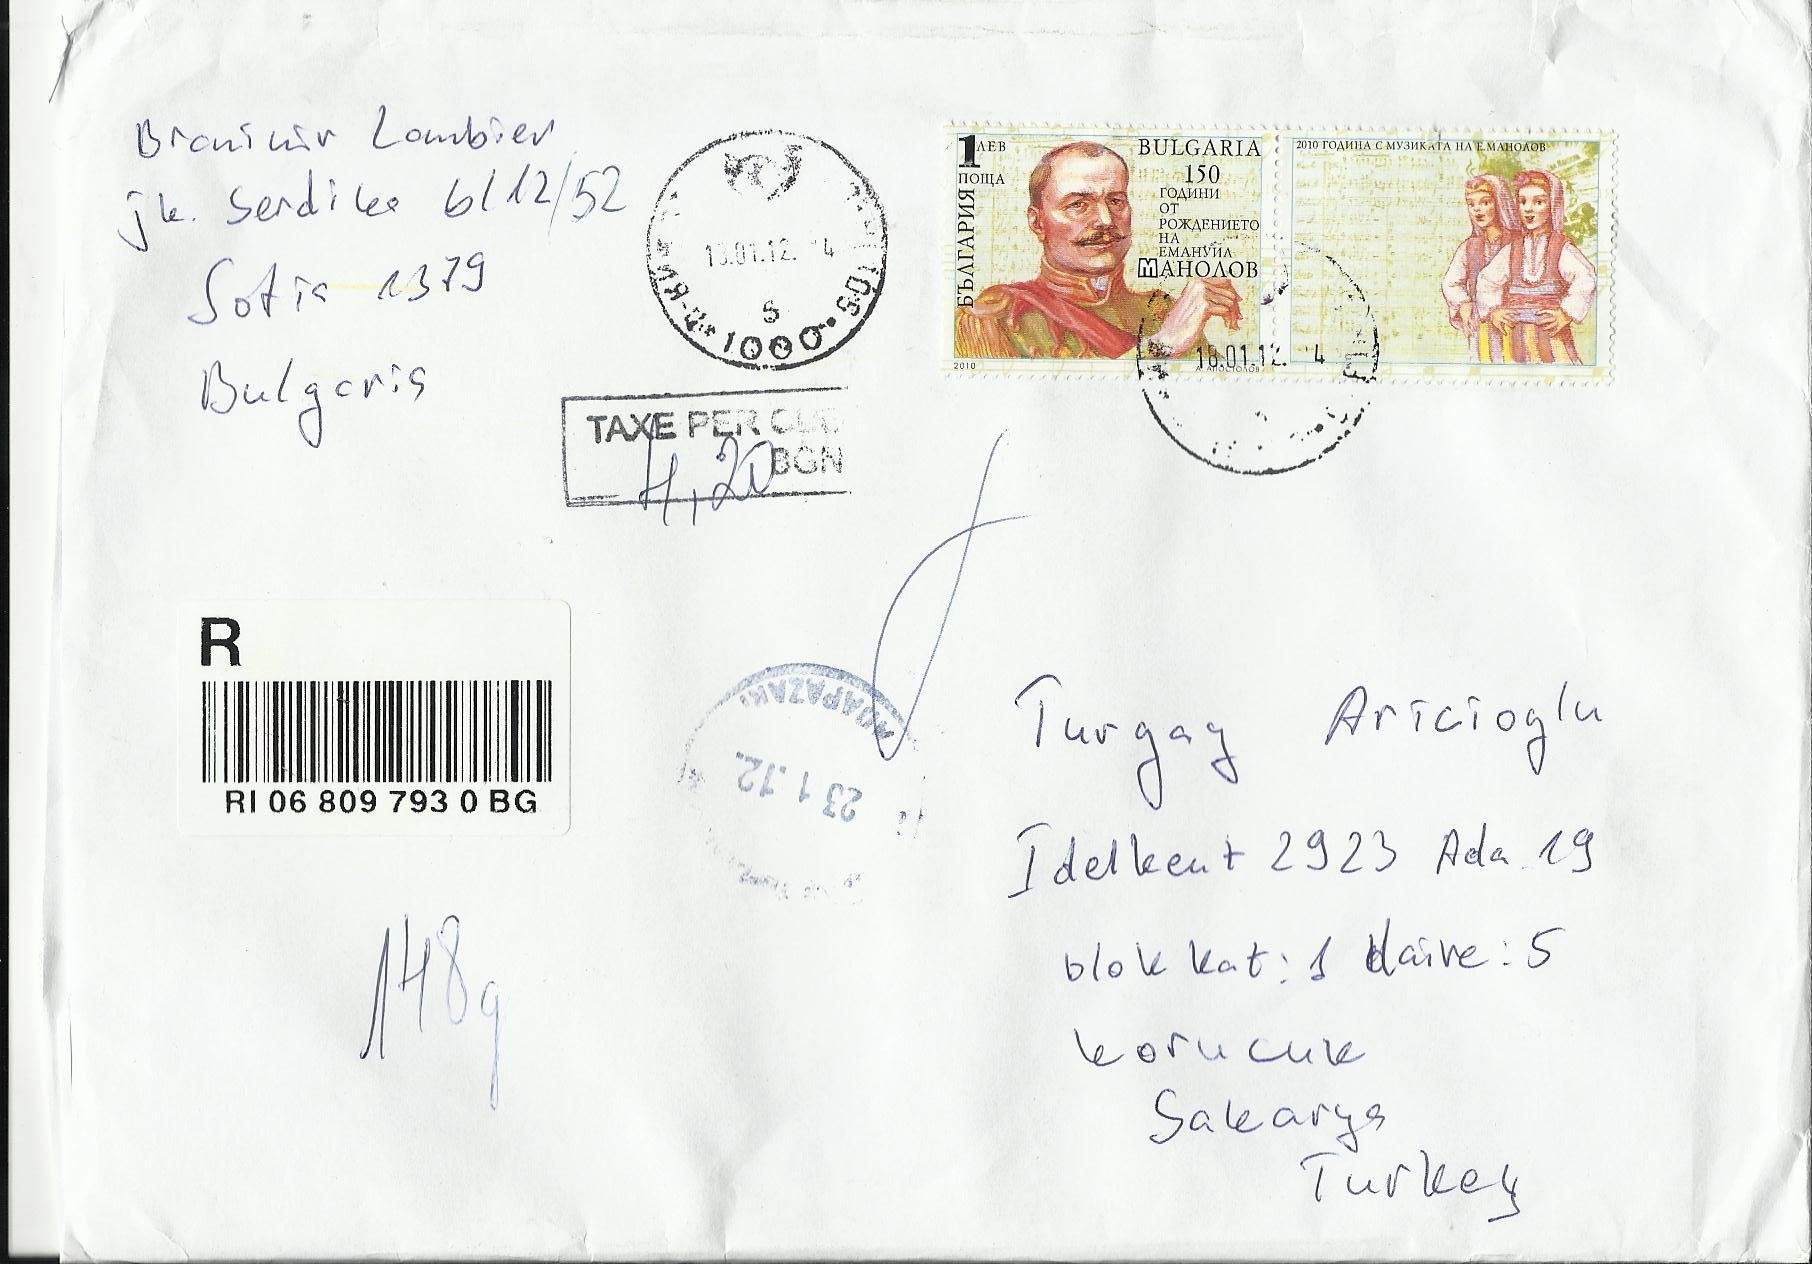 Branimir Lambrev
jk. Serdika bl 12/52
Sofia 1379
Bulgaria
18.01.12. 4
S
1000
TAXE PER
BGN
4,20
1 ЛЕВ
ПОЩА
БЪЛГАРИЯ
BULGARIA
150
ГОДИНИ
ОТ
РОЖДЕНИЕТО
НА
ЕМАНУИЛ
МАНОЛОВ
2010
А. АПОСТОЛОВ
2010 ГОДИНА С МУЗИКАТА НА Е.МАНОЛОВ
18.01.12. 4
R
RI 06 809 793 0 BG
ADAPAZARI
23 1.12.
148g
Turgay Aricioglu
Idelkent 2923 Ada 19
blok kat: 1 daire: 5
Korucuk
Sakarya
Turkey